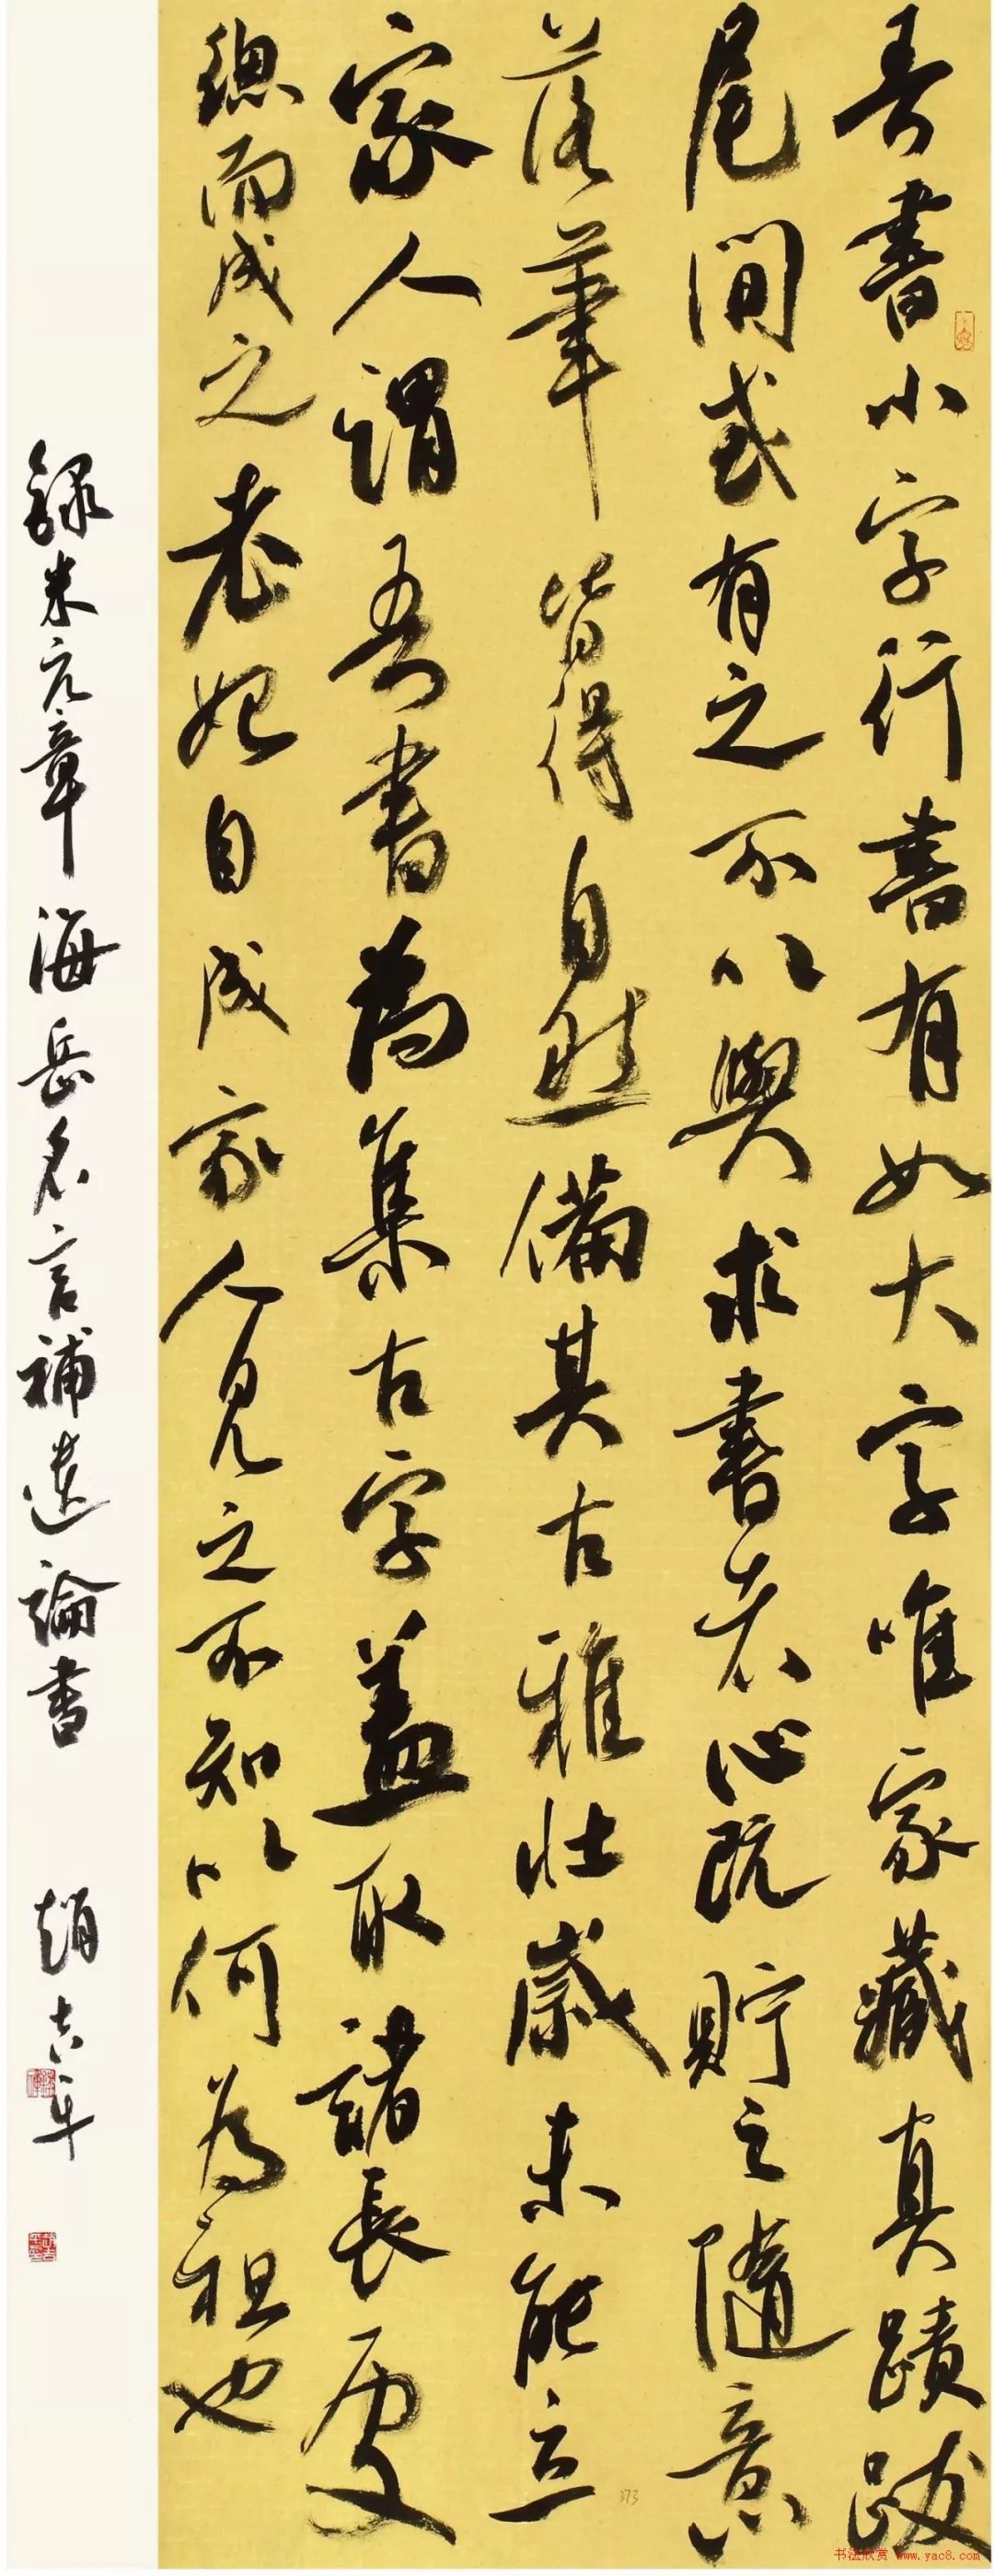 吾書小字行書有如大字唯家藏真蹟跋
尾間或有之不以與求書者心既貯之隨意
落筆皆得自然備其古雅壯歲未能立
家人謂吾書為集古字蓋取諸長處
總而成之老始自成家人見之不知以何為祖也
錄米元章海岳名言補遺論書
趙吉平
373
书法欣赏 www.yac8.com